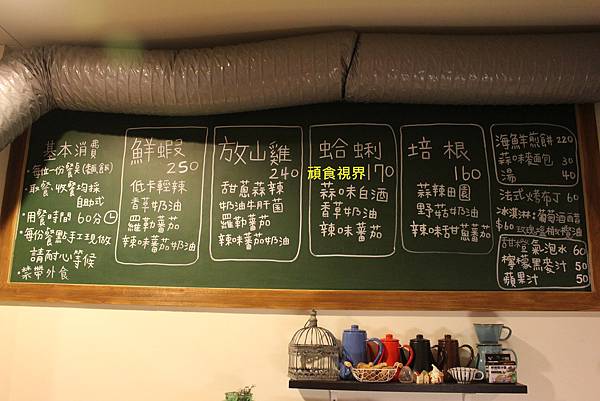 基本消費
•每位一份餐點(鹹食)
•取餐、收餐均採
自助式
•用餐時間60分
•每份餐點手工現做
請耐心等候
•禁帶外食
鮮蝦
250
低卡輕辣
香草奶油
羅勒蕃茄
辣味蕃茄奶油
放山雞
240
甜蔥蒜辣
奶油牛肝菌
羅勒蕃茄
辣味蕃茄奶油
蛤蜊
170
蒜味白酒
香草奶油
辣味蕃茄
頑食視界
培根
160
蒜辣田園
野菇奶油
辣味甜蔥蕃茄
海鮮煎餅220
蒜味麥面包30
湯 40
法式烤布丁60
冰淇淋:葡萄酒醋
$60 玫瑰鹽橄欖油
甜橙氣泡水60
檸檬黑麥汁50
蘋果汁 50